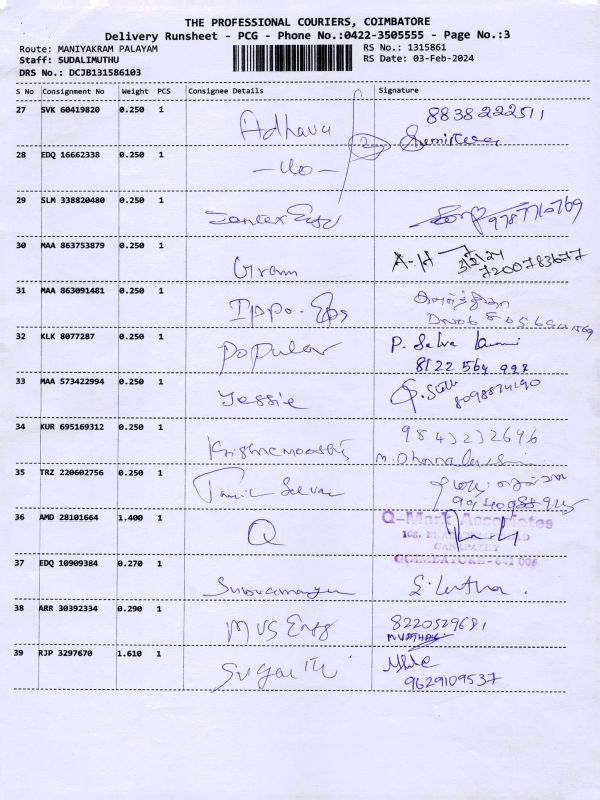 THE PROFESSIONAL COURIERS, COIMBATORE
Delivery Runsheet - PCG - Phone No.:0422-3505555 - Page No.:3
Route: MANIYAKRAM PALAYAM
RS No.: 1315861
Staff: SUDALIMUTHU
RS Date: 03-Feb-2024
DRS No.: DCJB131586103
S No Consignment No Weight PCS Consignee Details Signature
27 SVK 60419820 0.250 1 Adhava 8838222511
28 EDQ 16662338 0.250 1
29 SLM 338820480 0.250 1 9787710769
30 MAA 863753879 0.250 1 Gram A-H 3/2/24
7200783677
31 MAA 863091481 0.250 1 Ippo.
32 KLK 8077287 0.250 1 Popular P. Selva
8122 564 997
33 MAA 573422994 0.250 1 Jessie
34 KUR 695169312 0.250 1 Krishnamoorthy 9843232696
35 TRZ 220602756 0.250 1 Tamil Selvan
36 AMD 28101664 1.400 1 Q Q-Mark Associates
COIMBATORE-641 006
37 EDQ 10909384 0.270 1 S. Latha
38 ARR 30392334 0.290 1 MVS Engg 8220529681
39 RJP 3297670 1.610 1 9629109537